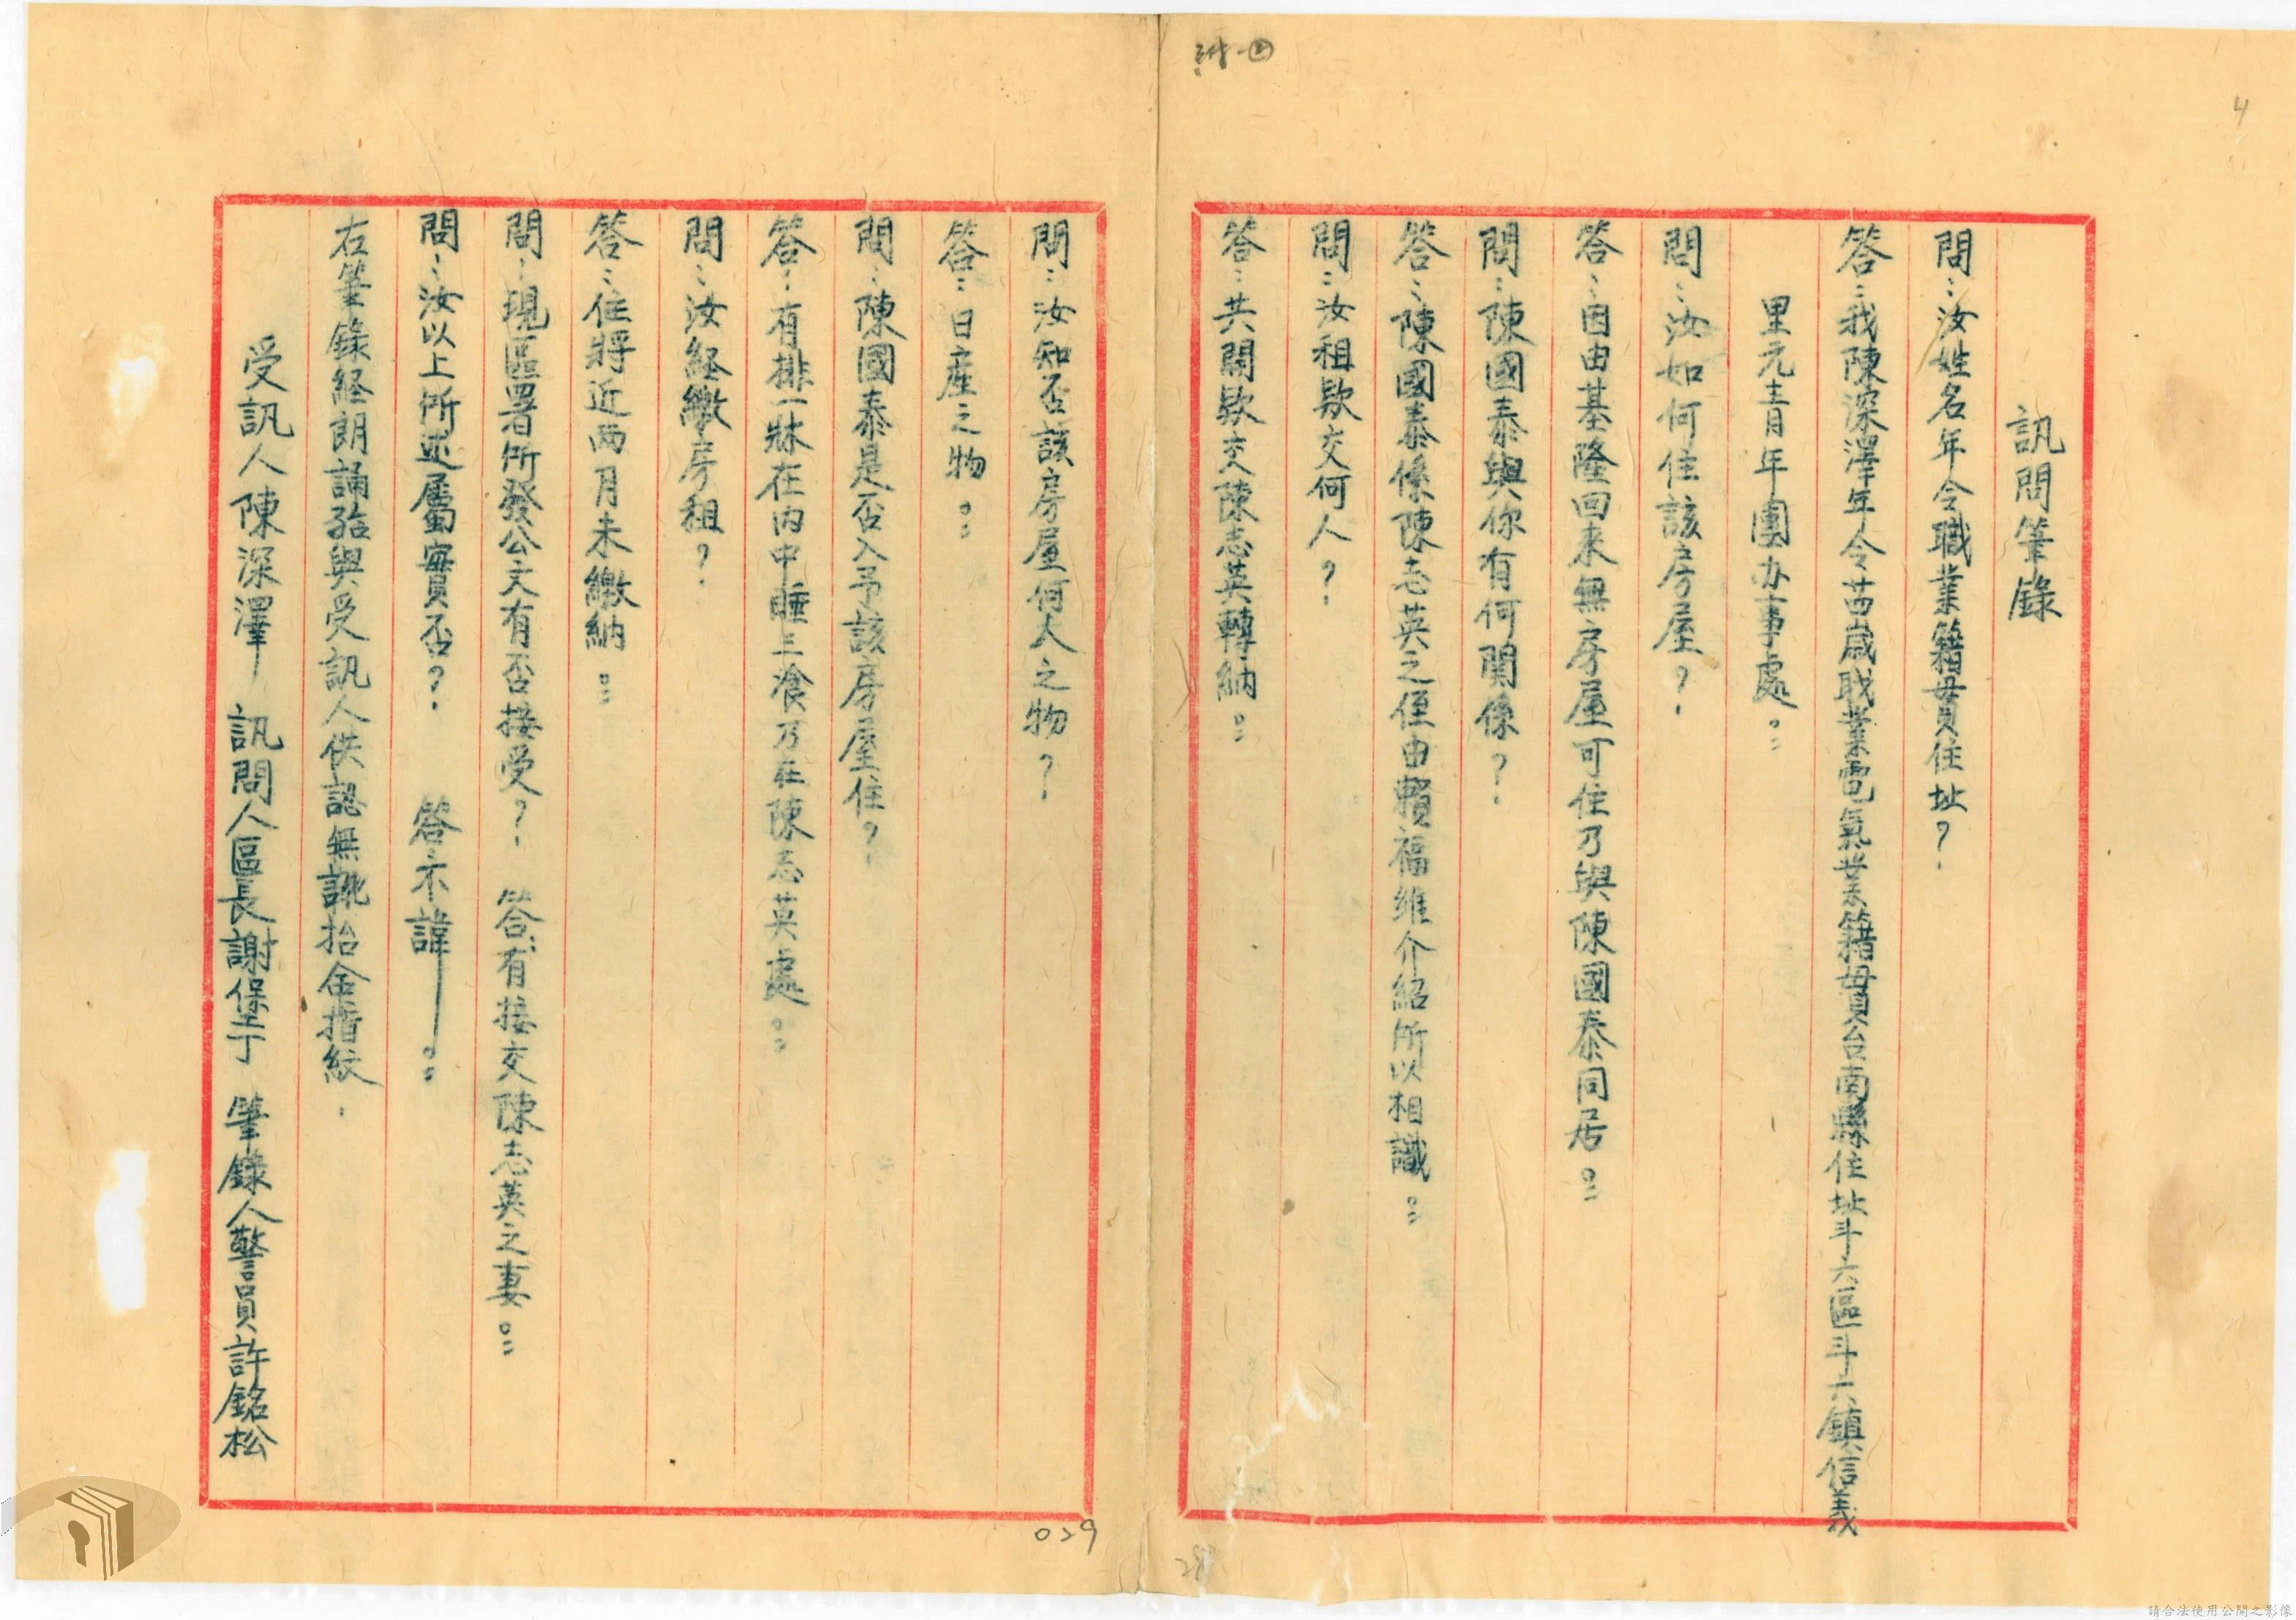 附一②
4
訊問筆錄
問：汝姓名年令職業籍貫住址？
答：我陳深澤年令廿四歲職業電氣業籍貫台南縣住址斗六區斗六鎮信義
里元青年團办事處。
問：汝如何住該房屋？
答：因由基隆回來無房屋可住乃與陳國泰同居。
問：陳國泰與你有何関係？
答：陳國泰係陳志英之侄由賴福維介紹所以相識。
問：汝租欵交何人？
答：共開欵交陳志英轉納。
問：汝知否該房屋何人之物？
答：日產之物。
問：陳國泰是否入予該房屋住？
答：有排一牀在内中睡三飡乃在陳志英處。
問：汝経繳房租？
答：住將近两月未繳納。
問：現區署所發公文有否接受？ 答：有接交陳志英之妻。
問：汝以上所述屬實否？ 答：不諱。
右筆錄経朗誦給與受訊人供認無訛拾念指紋．
受訊人陳深澤 訊問人區長謝堡丁 筆錄人警員許銘松
029
28
請合法使用公開之影像